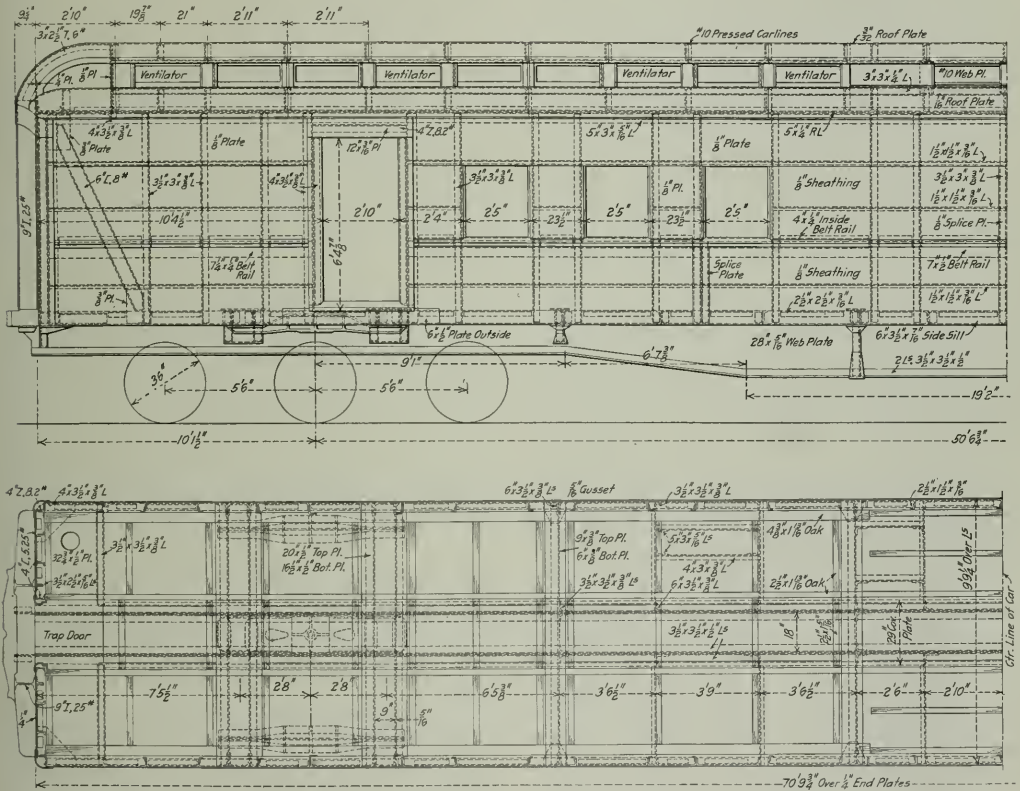 9¼"
2'10"
19⅞"
21"
2'11"
2'11"
3"x2½"7,6#
#10 Pressed Carlines
3/32" Roof Plate
¼" Pl.
⅛" Pl
Ventilator
Ventilator
Ventilator
Ventilator
3"x3"x¼" L
#10 Web Pl.
1/16" Roof Plate
4"x3½"x⅜" L
4"Z,8.2#
5"x3"x5/16" L
5"x¼" RL
⅜" Plate
⅛" Plate
12"x3/16" Pl
⅛" Plate
1½"x1½"x3/16" L
6"I,8#
3½"x3"x⅜" L
4"x3½"x⅜" L
3½"x3"x⅜" L
⅛" Pl.
⅛" Sheathing
3½"x3"x⅜" L
1½"x1½"x3/16" L
9"I,25#
10'4½"
2'10"
2'4"
2'5"
23½"
2'5"
23½"
2'5"
4"x¼" Inside
Belt Rail
⅛" Splice Pl.
6'4⅜"
7¼"x¼" Belt
Rail
Splice
Plate
⅛" Sheathing
7"x½" Belt Rail
⅜" Pl.
2½"x2½"x3/16" L
1½"x1½"x3/16" L
6"x½" Plate Outside
28"x5/16" Web Plate
6"x3½"x7/16" Side Sill
9'1"
6'7⅜"
2Ls 3½"x3½"x½"
3'6"
5'6"
5'6"
19'2"
10'1½"
50'6¾"
4"Z,8.2#
4"x3½"x⅜" L
6"x3½"x⅜" Ls
5/16" Gusset
3½"x3½"x⅜" L
2½"x1½"x3/16"
4"I,5.25#
32¾"x½" Pl.
3½"x3½"x⅜" L
20"x½" Top Pl.
16½"x½" Bot. Pl.
9"x⅜" Top Pl.
6"x⅝" Bot. Pl.
5"x3"x5/16" Ls
4¾"x1 13/16" Oak
4"x3"x⅜" L
9'9¼" Over Ls
3½"x2½"x5/16" L
3½"x3½"x⅜" Ls
6"x3½"x⅜" L
2½"x1 13/16" Oak
Trap Door
3½"x3½"x½" Ls
18"
29" Cov.
Plate
Ctr. Line of Car
7'5½"
2'8"
2'8"
6'5⅜"
3'6½"
3'9"
3'6½"
2'6"
2'10"
9"I,25#
4"
9"
5/16"
70'9¾" Over ¼" End Plates